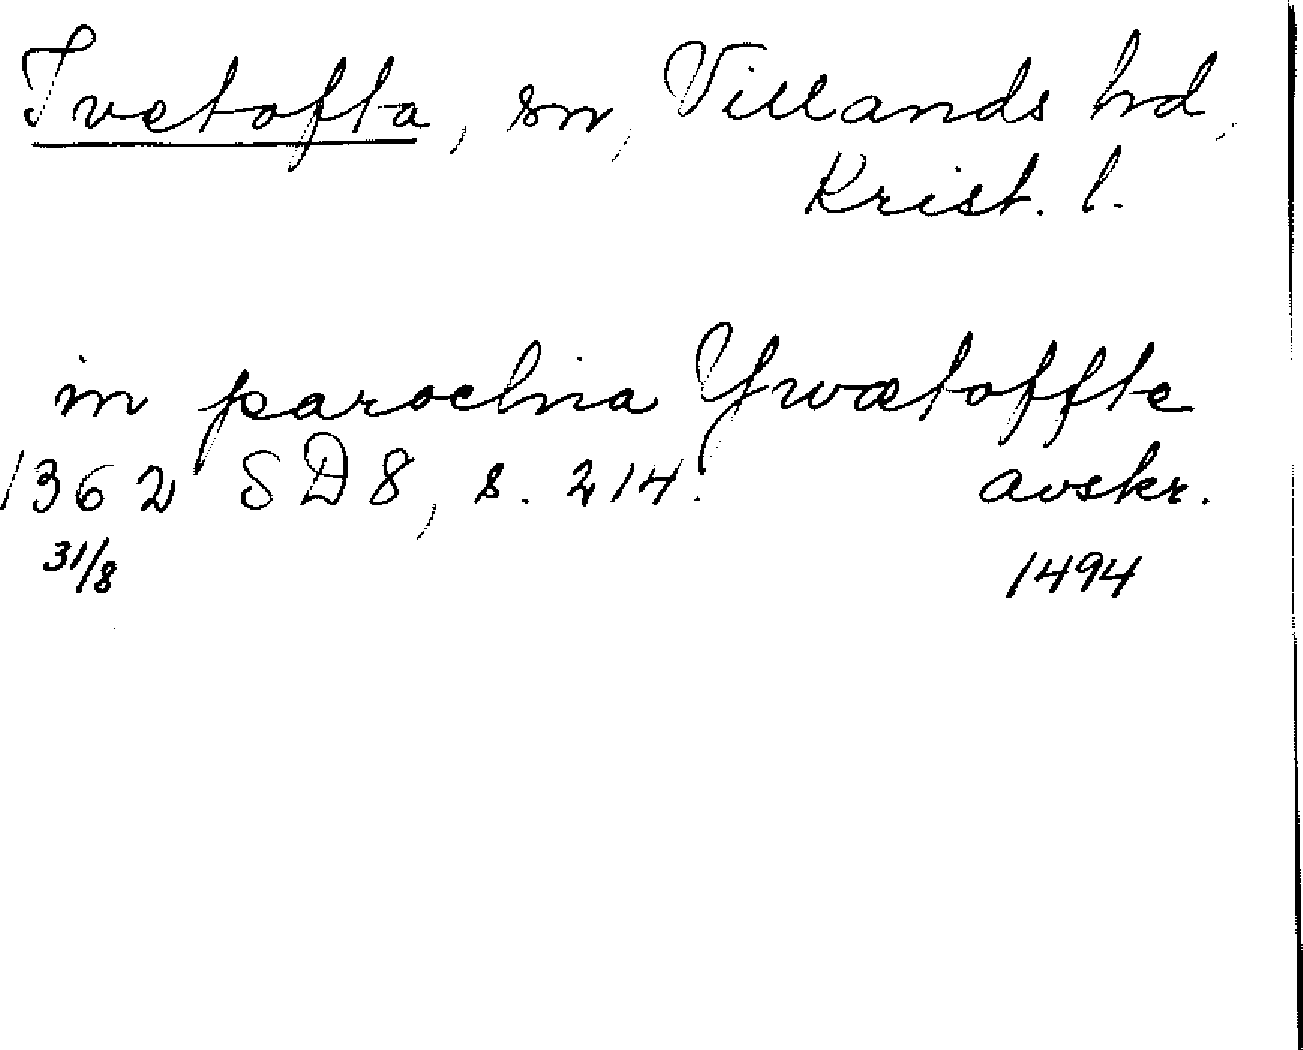 Ivetofta, sn, Villands hd,
Krist. l.
in parochia Ywætoffte
1362 SD 8, s. 214. avskr.
31/8 1494